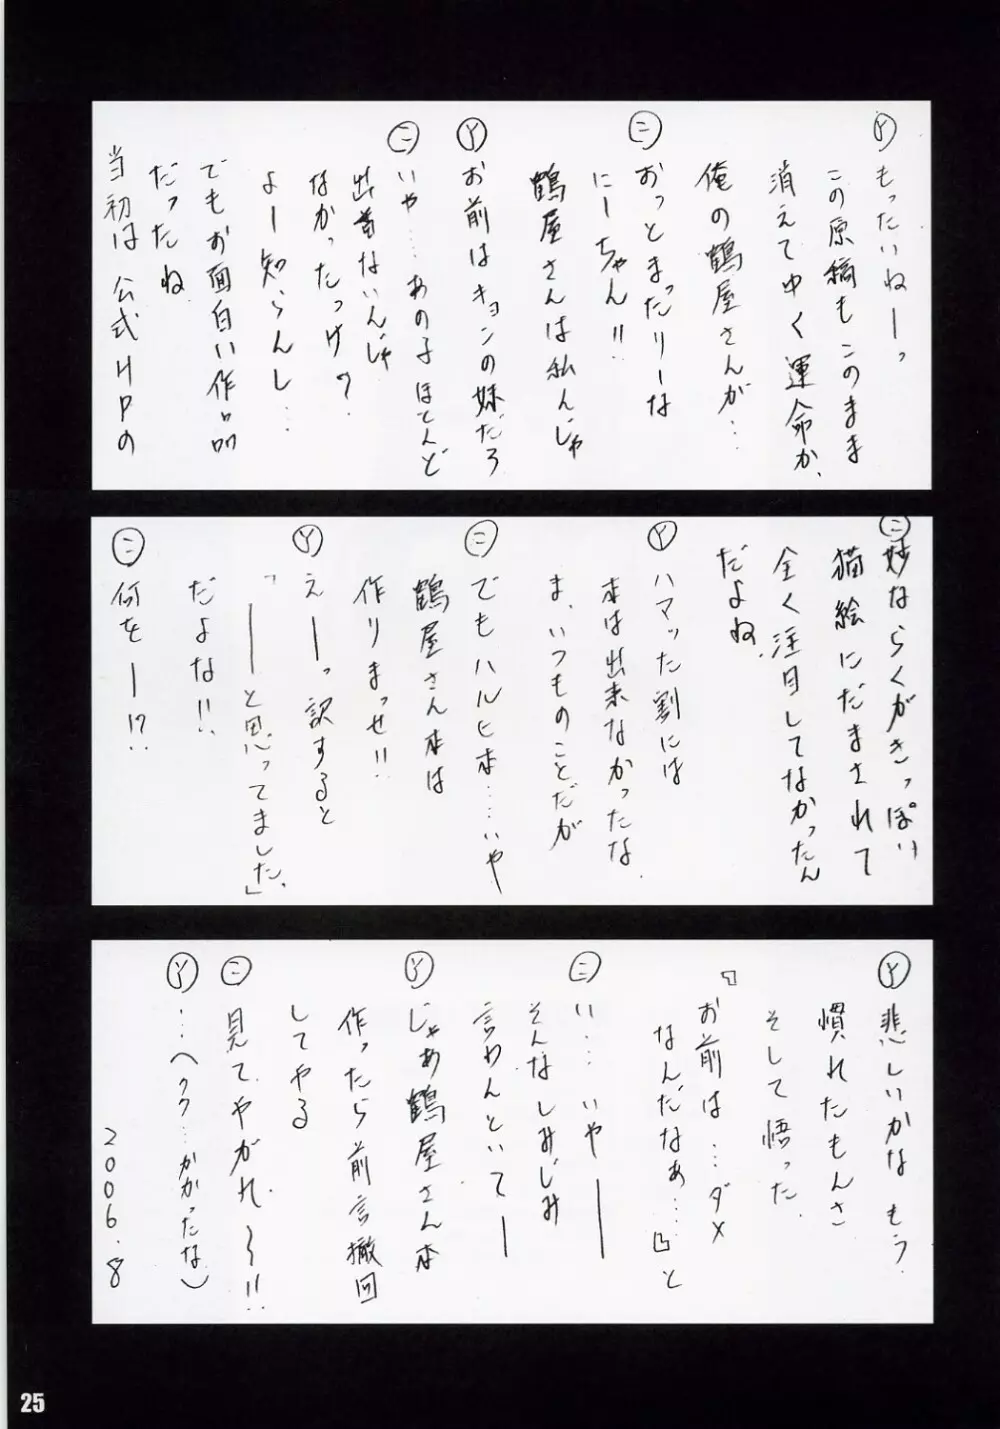 Ⓨ もったいねーっ
この原稿もこのまま
消えてゆく運命か、
俺の鶴屋さんが…
㊁ おっとまったりーな
にーちゃん!!
鶴屋さんは私んじゃ
Ⓨ お前はキョンの妹だろ
㊁ いや……あの子ほとんど
出番ないんじゃ
なかったっけ?
よー知らんし…
でもお面白い作品
だったね
当初は公式HPの
㊁ 妙ならくがきっぽい
猫絵にだまされて
全く注目してなかったん
だよね、
Ⓨ ハマッた割には
本は出来なかったな
ま、いつものことだが
㊁ でもハルヒ本……いや
鶴屋さん本は
作りまっせ!!
Ⓨ えーっ訳すると
「――と思ってました。」
だよな!!
㊁ 何をー!?
Ⓨ 悲しいかなもう
慣れたもんさ
そして悟った
『お前は…ダメ
なんだなぁ…』と
㊁ い…いや――
そんなしみじみ
言わんといて―
Ⓨ じゃあ鶴屋さん本
作ったら前言撤回
してやる
㊁ 見てやがれ〜!!
Ⓨ …ヘクク…かかったな)
2006.8
25